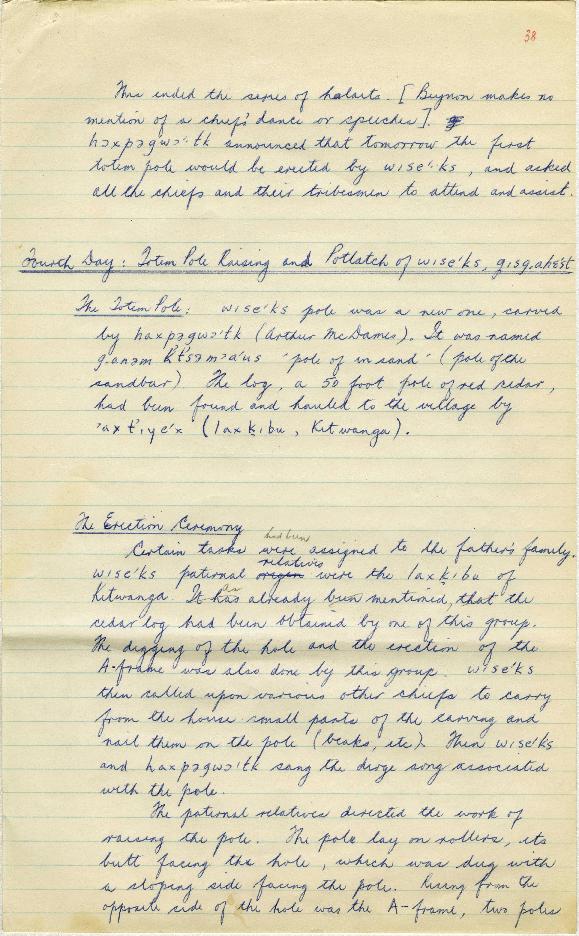 38
This ended the series of halaits. [Beynon makes no
mention of a chief's dance or speeches].
hɔxpəgwɔ'·tk announced that tomorrow the first
totem pole would be erected by wise'·ks, and asked
all the chiefs and their tribesmen to attend and assist.
Fourth Day: Totem Pole Raising and Potlatch of wise'ks, gisg.ahɛst
The Totem Pole: wise'ks pole was a new one, carved
by haxpəgwɔ'tk (Arthur McDames). It was named
g.anəm k̓t̓səmɔa'us 'pole of in sand' (pole of the
sandbar). The log, a 50 foot pole of red cedar,
had been found and hauled to the village by
'ax t̓'iyɛ'x (laxk̩ibu, Kitwanga).
The Erection Ceremony
had been
Certain tasks were assigned to the father's family.
relatives
wise'ks paternal origin were the laxk̩ibu of
as
Kitwanga. It has already been mentioned, that the
cedar log had been obtained by one of this group.
The digging of the hole and the erection of the
A-frame was also done by this group. wise'ks
then called upon various other chiefs to carry
from the house small parts of the carving and
nail them on the pole (beaks, etc). Then wise'ks
and haxpəgwɔ'tk sang the dirge song associated
with the pole.
The paternal relatives directed the work of
raising the pole. The pole lay on rollers, its
butt facing the hole, which was dug with
a sloping side facing the pole. Rising from the
opposite side of the hole was the A-frame, two poles